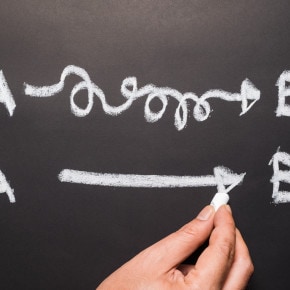 A B
A B